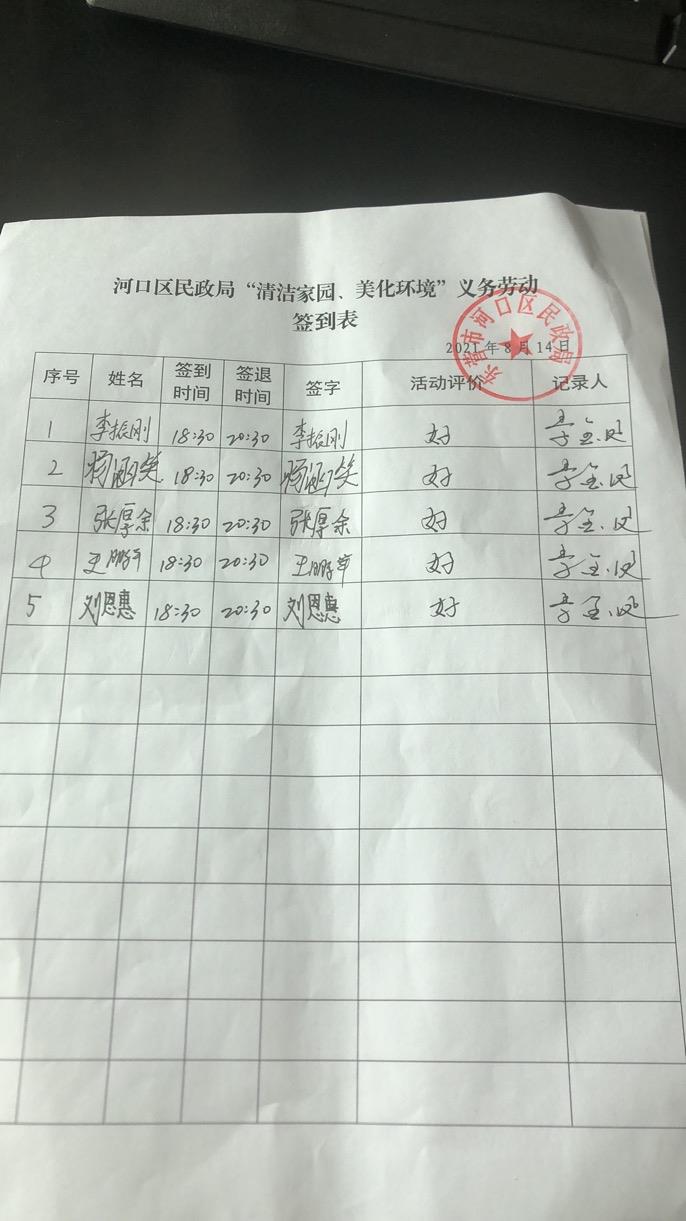 河口区民政局“清洁家园、美化环境”义务劳动
签到表
东营市河口区民政局
2021年8月14日
序号 姓名 签到时间 签退时间 签字 活动评价 记录人
1 李振刚 18:30 20:30 李振刚 好
2 杨涵笑 18:30 20:30 杨涵笑 好
3 张厚余 18:30 20:30 张厚余 好
4 王鹏军 18:30 20:30 王鹏军 好
5 刘恩惠 18:30 20:30 刘恩惠 好